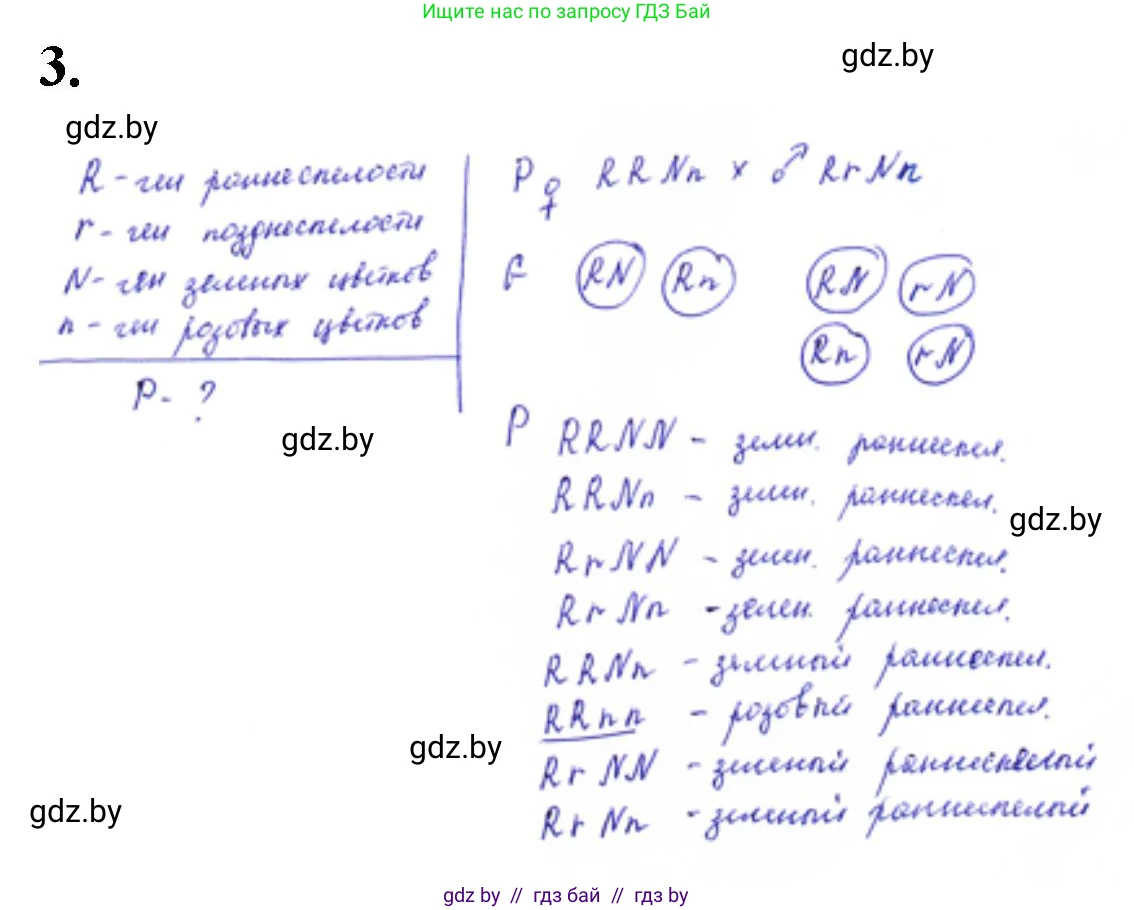 Ищите нас по запросу ГДЗ Бай
3.
gdz.by
gdz.by
R - ген раннеспелости
r - ген позднеспелости
N - ген зеленых цветков
n - ген розовых цветков
P - ?
gdz.by
P ♀ RRNn × ♂ RrNn
G RN Rn RN rN
Rn rN
P RRNN - зелен. раннеспел.
RRNn - зелен. раннеспел.
gdz.by
RrNN - зелен. раннеспел.
RrNn - зелен. раннеспел.
RRNn - зеленый раннеспел.
RRnn - розовый раннеспел.
gdz.by
RrNN - зеленый раннеспелый
gdz.by
RrNn - зеленый раннеспелый
gdz by // гдз бай // гдз by